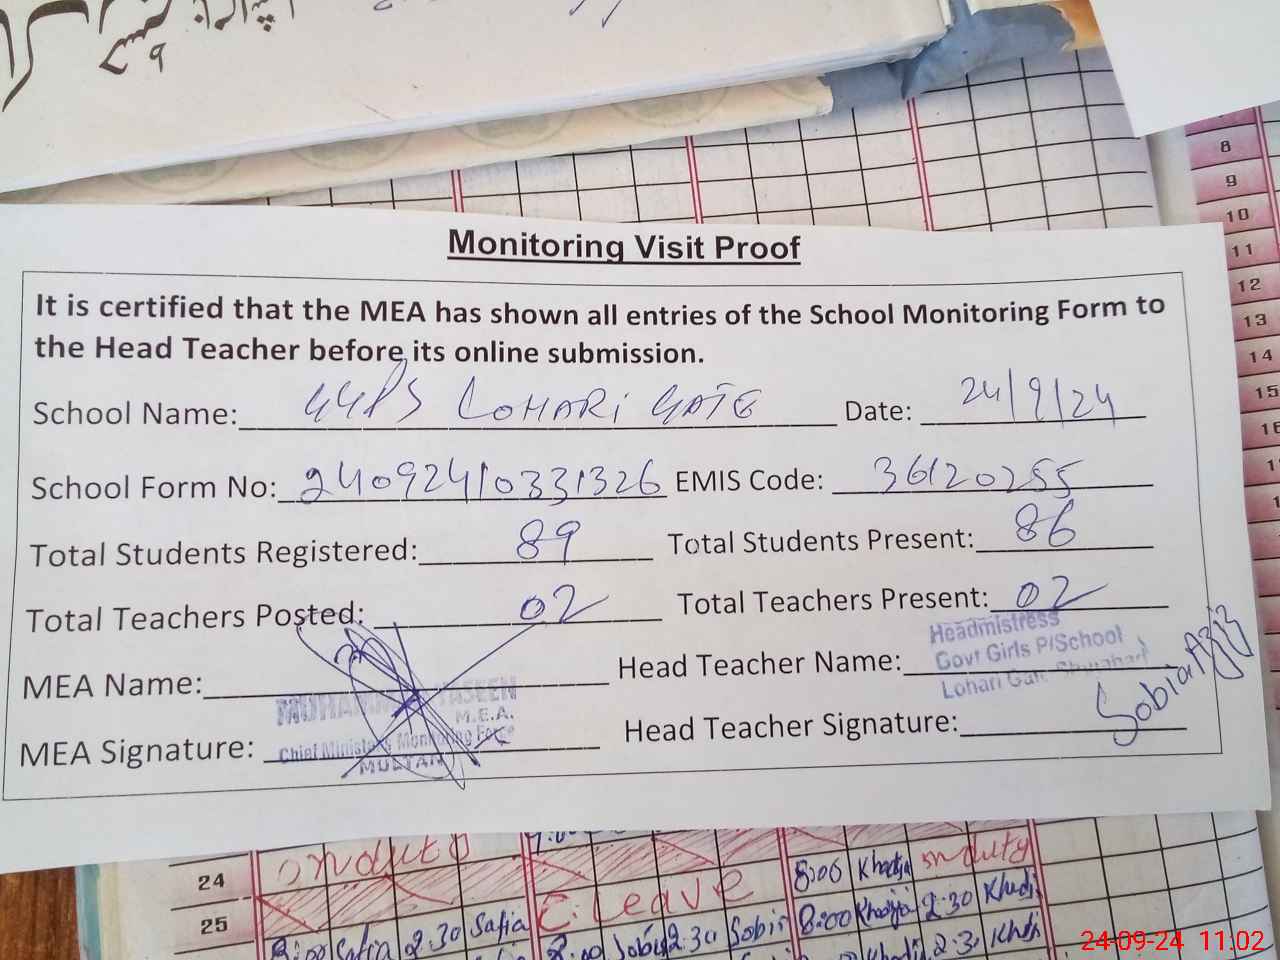 Monitoring Visit Proof
It is certified that the MEA has shown all entries of the School Monitoring Form to
the Head Teacher before its online submission.
School Name: GGPS LOHARi GATE Date: 24/9/24
School Form No: 24092410331326 EMIS Code: 36120255
Total Students Registered: 89 Total Students Present: 86
Total Teachers Posted: 02 Total Teachers Present: 02
MEA Name: Head Teacher Name:
Headmistress
Govt Girls P/School
Lohari Gate
M.E.A.
Chief Minister's Monitoring Force
MULTAN
MEA Signature: Head Teacher Signature: Sobia Aziz
8
9
10
11
12
13
14
15
16
24 on duty 8:00 Khadija on duty
25 8:00 Safia 2:30 Safia C. Leave 8:00 Khadija 2:30 Khadij
24-09-24 11:02